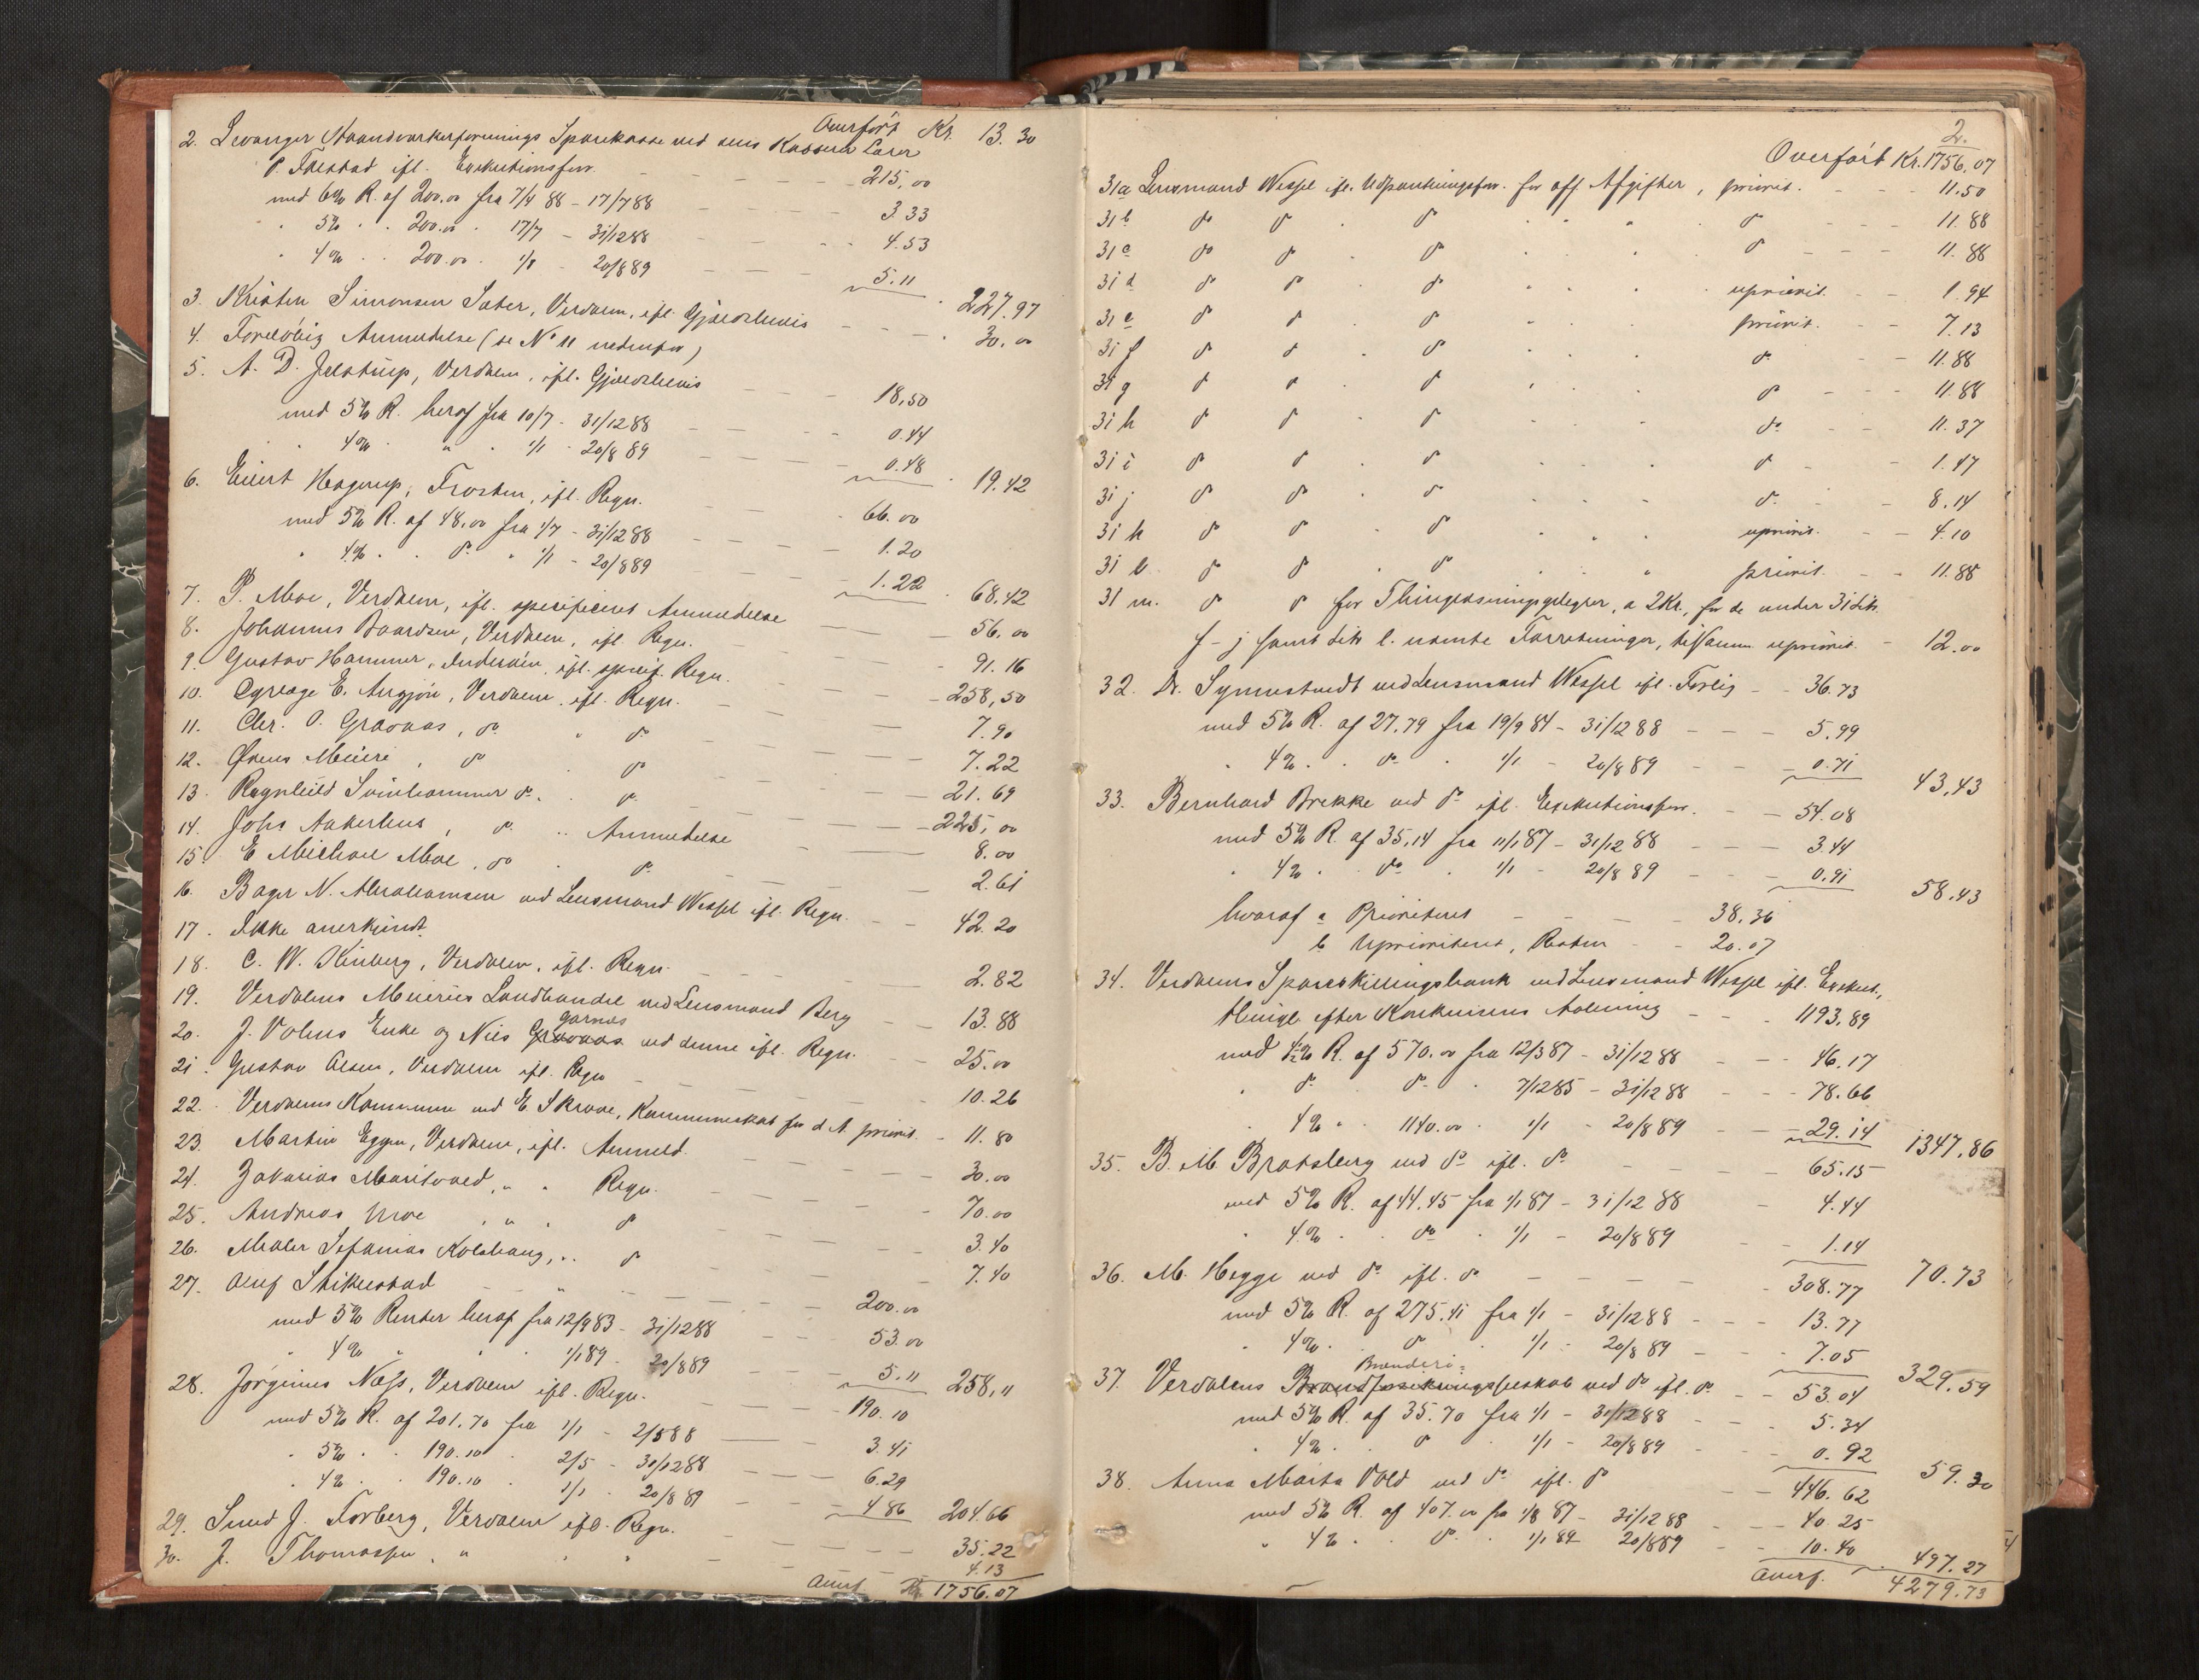 Overført Kr. 13.30
2. Levanger Haandværkerforenings Sparekasse ved dens Kasserer Laren
P. Tilestad ifl. Exekutionsforr. 215,00
med 6% R. af 200.00 fra 7/4 88 - 17/7 88 3.33
" 5% " " 200.00 " 17/7 - 31/12 88 4.53
" 4% " " 200.00 " 1/1 - 20/8 89 5.11 227.97
3. Kristen Simonsen Sæter, Verdalen, ifl. Gjældsbevis 30.00
4. Foreløbig Anmeldelse (se No 11 nedenfor)
5. A. D. Jelstrup, Verdalen, ifl. Gjældsbevis 18,50
med 5% R. heraf fra 10/7 - 31/12 88 0.44
" 4% " " " 1/1 - 20/8 89 0.48 19.42
6. Eilert Hagerup, Frosten, ifl. Regn. 66.00
med 5% R. af 48,00 fra 1/7 - 31/12 88 1.20
" 4% " " do " 1/1 - 20/8 89 1.22 68,42
7. P. Moe, Verdalen, ifl. specificeret Anmeldelse 56.00
8. Johannes Baardsen, Verdalen, ifl. Regn. 91.16
9. Gustav Hammer, Inderøen, ifl. specif. Regn. 258,50
10. Cyriage E. Angjøn, Verdalen, ifl. Regn. 7.90
11. Chr. O. Graanas, do " do 7.22
12. Ørens Meieri, do " do 21.69
13. Ragnhild Svinhammer do " do 225,00
14. Johs Aakerhus, do " Anmeldelse 8.00
15. E Michael Moe, do " do 2.61
16. Bager N. Abrahamsen ved Lensmand Wessel ifl. Regn. 42.20
17. Ikke anerkjendt.
18. C. W. Kinberg, Verdalen, ifl. Regn. 2.82
19. Verdalens Meieries Landhandel ved Lensmand Berg 13.88
Garnes
20. J. Volens Enke og Nils Graanas ved denne ifl. Regn. 25.00
21. Gustav Olsen, Verdalen ifl. Regn 10.26
22. Verdalens Kommune ved E. Skrove, Kommuneskat for d A. priorit. 11.80
23. Martin Eggen, Verdalen, ifl. Anmeld. 30.00
24. Zakarias Maritvold, " " Regn. 70.00
25. Andreas Moe " " do 3.40
26. Maler Sefanias Kolshaug, " " do 7.40
27. Oluf Stiklestad " 200.00
med 5% Renter heraf fra 12/9 83 - 31/12 88 53.00
" 4% " " 1/1 89 - 20/8 89 5.11 258,11
28. Jørginus Næss, Verdalen ifl. Regn. 190.10
med 5% R. af 201.70 fra 1/1 - 2/5 88 3.41
" 5% " " 190.10 " 2/5 - 31/12 88 6.29
" 4% " " 190.10 " 1/1 - 20/8 89 4.86 204.66
29. Smed J. Forberg, Verdalen ifl. Regn. 35.22
30. J. Thomassen, " " " 4.13
Overf. Kr 1756.07
2.
Overført Kr. 1756.07
31a Lensmand Wessel ifl. Udpantningsforr. for off. Afgifter, priorit. 11.50
31 b do do " do " " " do 11.88
31 c do do " do " " " do 11.88
31 d do do " do " " " upriorit. 1.94
31 e do do " do " " " priorit. 7.13
31 f do do " do " " " do 11.88
31 g do do " do " " " do 11.88
31 h do do " do " " " do 11.37
31 i do do " do " " " do 1.47
31 j do do " do " " " do 8.14
31 k do do " do " " " upriorit. 4.10
31 l do do " do " " " priorit. 11.88
31 m. do do for Thinglæsningsgebyrer, a 2Kr, for de under 31 Litr.
f - j samt Litr l. nævnte Forretninger, tilsammen upriorit. 12.00
32. Dr. Synnestvedt ved Lensmand Wessel ifl. Forlig 36.73
med 5% R. af 27.79 fra 19/9 84 - 31/12 88 5.99
" 4% " " do " 1/1 - 20/8 89 0.71 43,43
33. Bernhard Brekke ved do ifl. Exekutionsforr. 54.08
med 5% R. af 35,14 fra 11/1 87 - 31/12 88 3.44
" 4% " " do " 1/1 - 20/8 89 0.91 58.43
hvoraf a Prioriteret 38.36
b Uprioriteret, Resten 20.07
34. Verdalens Spareskillingsbank ved Lensmand Wessel ifl. Exekut.,
tilligl. efter Konkursens Aabning 1193,89
med 4½% R. af 570.00 fra 12/3 87 - 31/12 88 46.17
" do " do " 7/12 85 - 31/12 88 78.66
" 4% " 1140.00 " 1/1 - 20/8 89 29.14 1347,86
35. B. M. Bratsberg ved do ifl. do 65.15
med 5% R. af 44.45 fra 1/1 87 - 31/12 88 4.44
" 4% " " do " 1/1 - 20/8 89 1.14 70.73
36. M. Hegge ved do ifl. do 308.77
med 5% R. af 275.41 fra 1/1 - 31/12 88 13.77
" 4% " do " 1/1 - 20/8 89 7.05 329.59
Brænderi=
37. Verdalens Brandforsikringsselskab ved do ifl. do 53.04
med 5% R. af 35.70 fra 1/1 - 31/12 88 5.34
" 4% " " do " 1/1 - 20/8 89 0.92 59.30
38. Anna Marta Vold ved do ifl. do 446.62
med 5% R. af 407.00 fra 1/8 87 - 31/12 88 40.25
" 4% " " do " 1/1 89 20/8 89 10.40 497.27
Overf. 4279.73